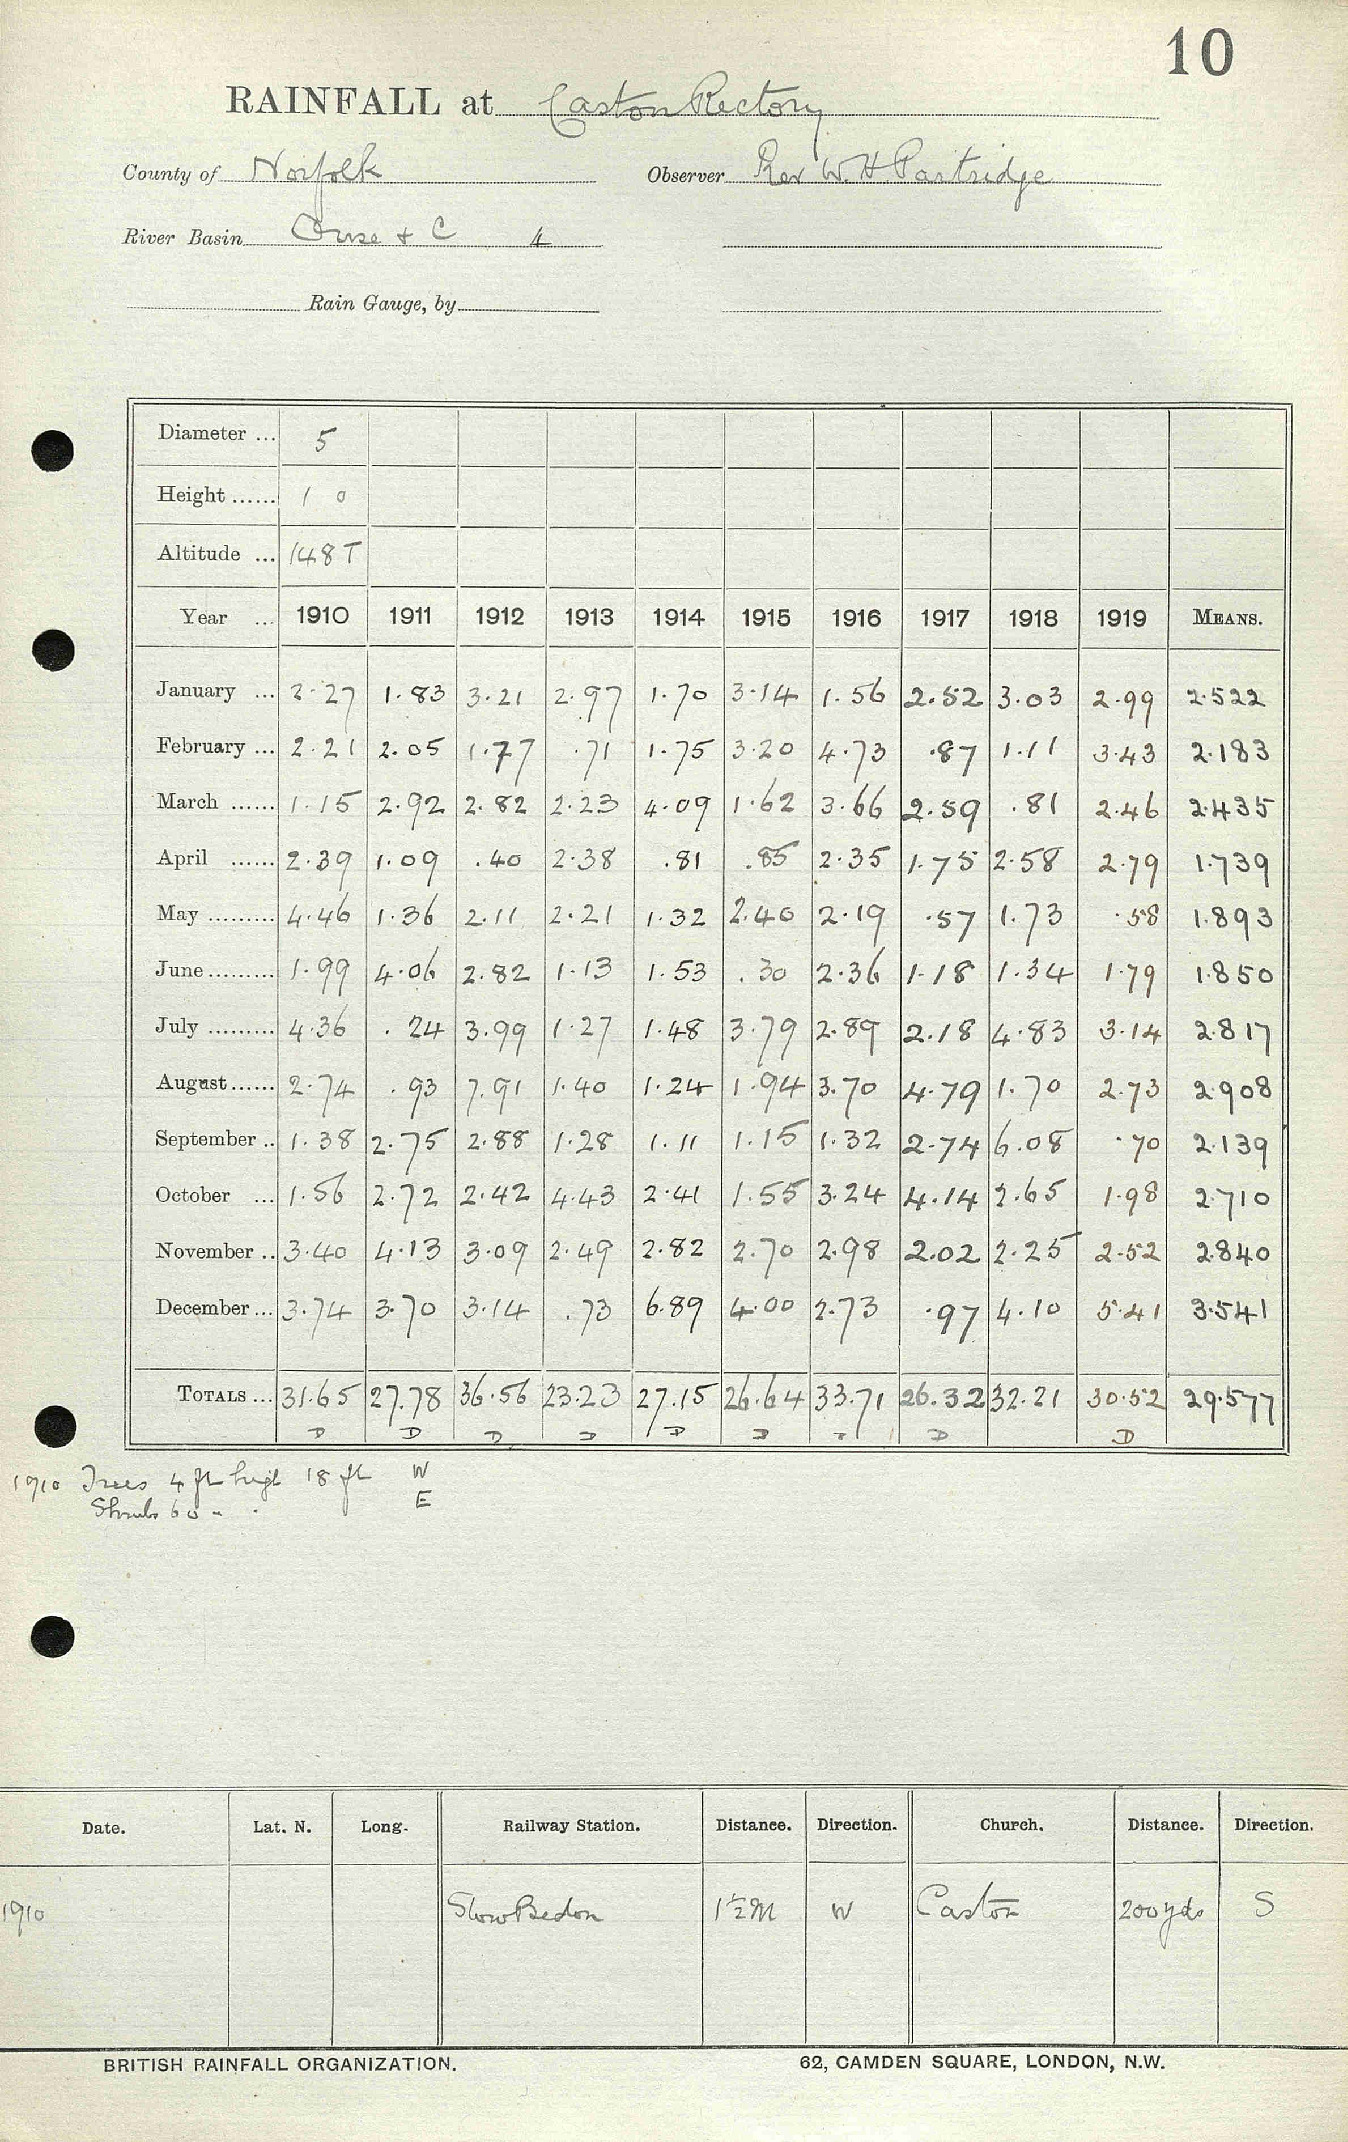 10
RAINFALL at Caston Rectory
County of Norfolk Observer Rev W. H. Partridge
River Basin Ouse + C 4
Rain Gauge, by
Diameter ... 5
Height ...... 1 0
Altitude ... 148 T
Year ... 1910 1911 1912 1913 1914 1915 1916 1917 1918 1919 MEANS.
January ... 2.27 1.83 3.21 2.97 1.70 3.14 1.56 2.52 3.03 2.99 2.522
February ... 2.21 2.05 1.77 .71 1.75 3.20 4.73 .87 1.11 3.43 2.183
March ...... 1.15 2.92 2.82 2.23 4.09 1.62 3.66 2.59 .81 2.46 2.435
April ...... 2.39 1.09 .40 2.38 .81 .85 2.35 1.75 2.58 2.79 1.739
May ......... 4.46 1.36 2.11 2.21 1.32 2.40 2.19 .57 1.73 .58 1.893
June ......... 1.99 4.06 2.82 1.13 1.53 .30 2.36 1.18 1.34 1.79 1.850
July ......... 4.36 .24 3.99 1.27 1.48 3.79 2.89 2.18 4.83 3.14 2.817
August ...... 2.74 .93 7.91 1.40 1.24 1.94 3.70 4.79 1.70 2.73 2.908
September .. 1.38 2.75 2.88 1.28 1.11 1.15 1.32 2.74 6.08 .70 2.139
October ... 1.56 2.72 2.42 4.43 2.41 1.55 3.24 4.14 2.65 1.98 2.710
November .. 3.40 4.13 3.09 2.49 2.82 2.70 2.98 2.02 2.25 2.52 2.840
December ... 3.74 3.70 3.14 .73 6.89 4.00 2.73 .97 4.10 5.41 3.541
TOTALS ... 31.65 27.78 36.56 23.23 27.15 26.64 33.71 26.32 32.21 30.52 29.577
D D D D D D D D
1910 Trees 4 ft high 18 ft W
Shrubs 6 E
Date. Lat. N. Long. Railway Station. Distance. Direction. Church. Distance. Direction.
1910 Stow Bedon 1½ M W Caston 200 yds S
BRITISH RAINFALL ORGANIZATION. 62, CAMDEN SQUARE, LONDON, N.W.